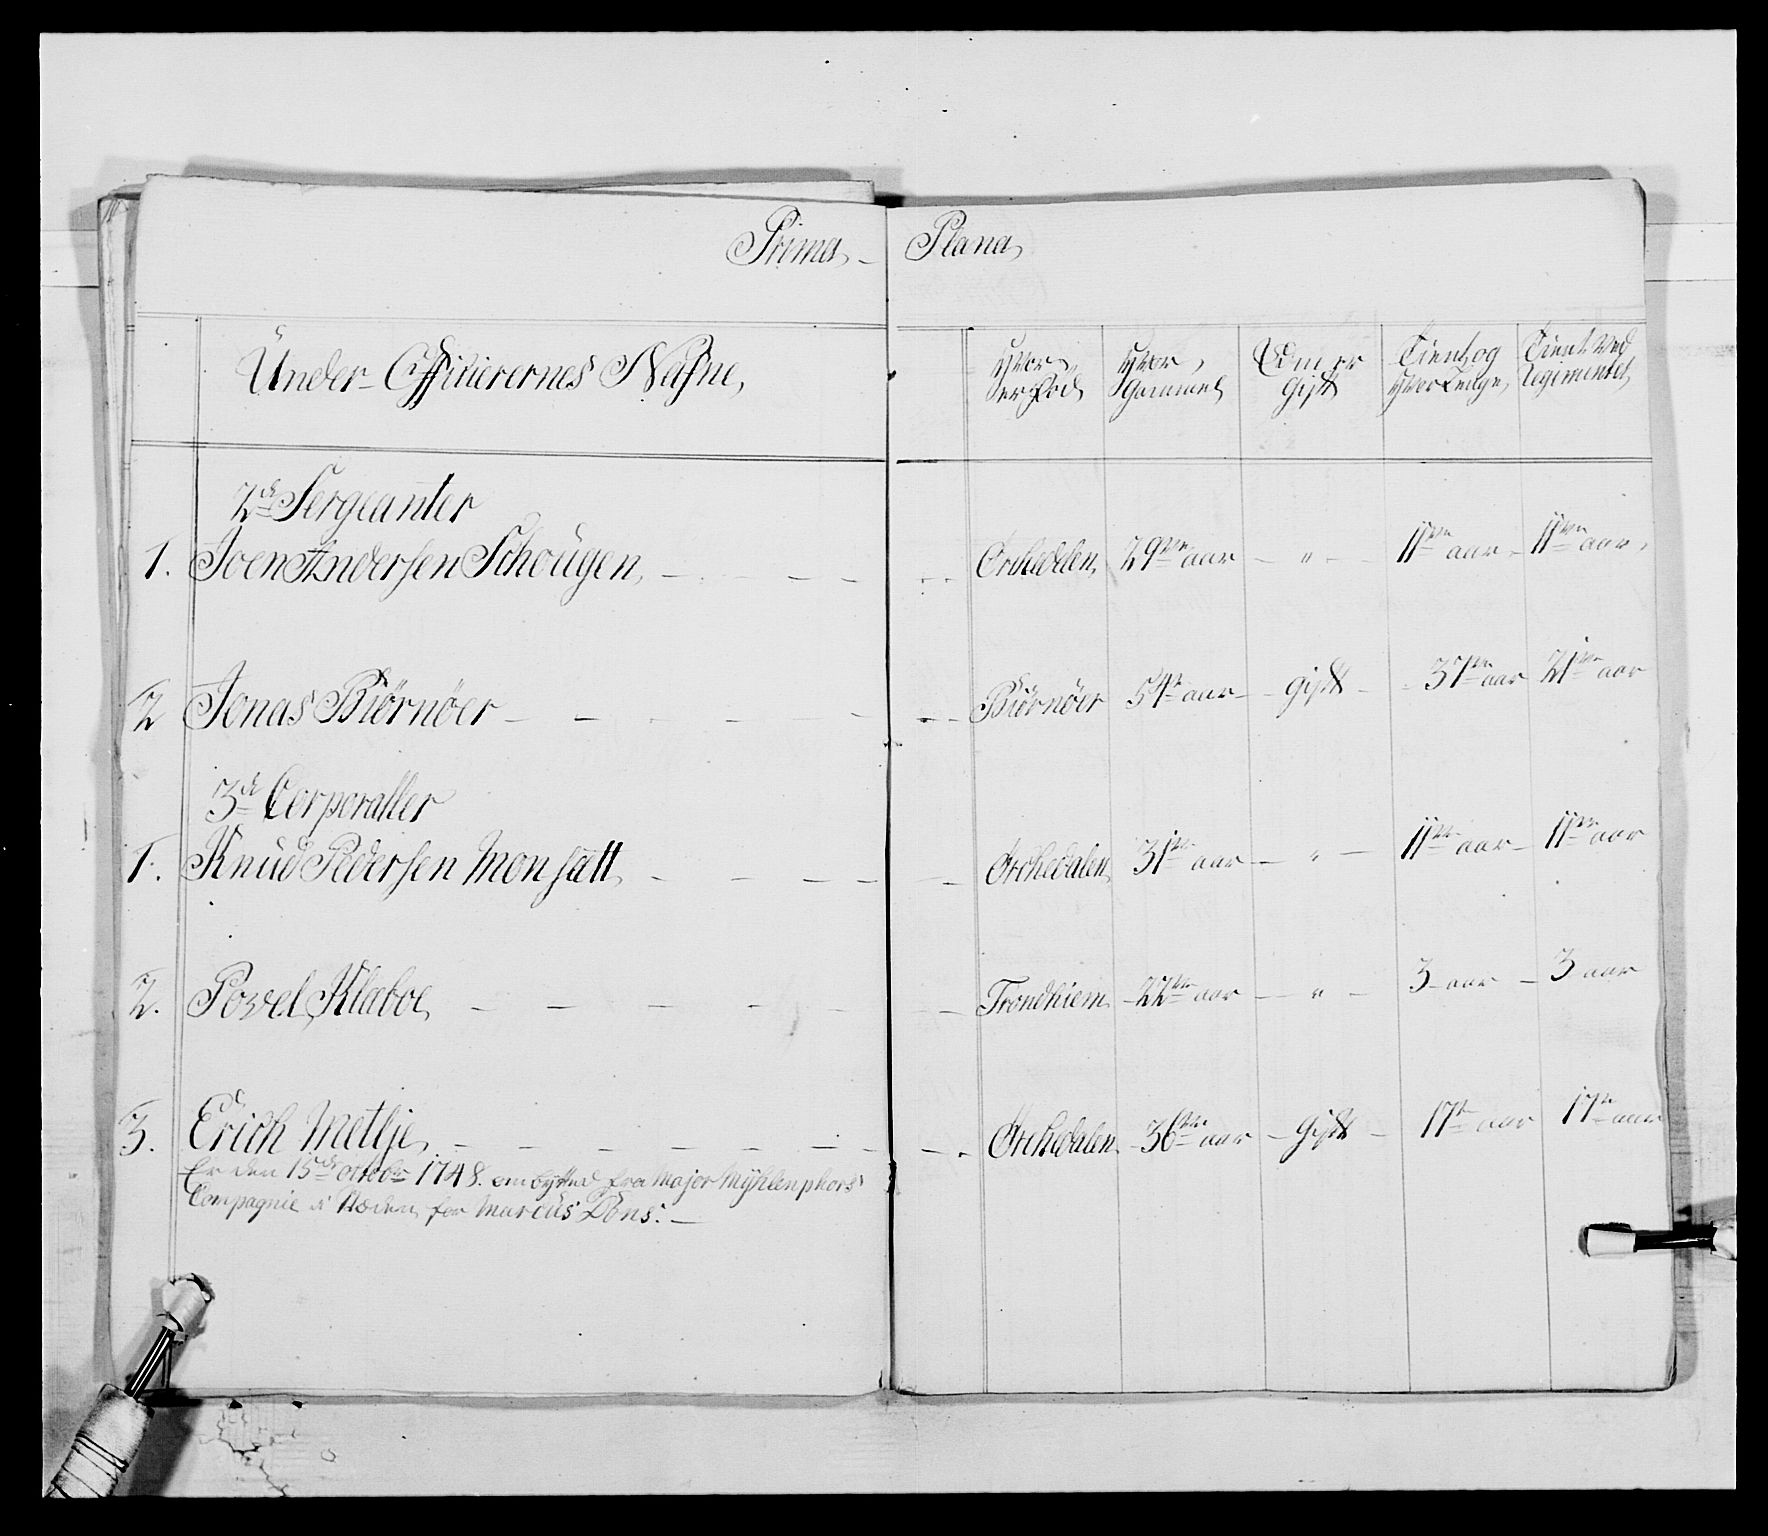 Prima Plana
Under-Officierernes Nafne,
Hvor er Fød
Hvor Gammel
Om er gift
Tient og Hvor Lenge,
Tient Ved Regimentet,
2de Sergeanter
1. Joen Andersen Schougen, Orchedalen, 29ve aar " 11ve aar 11ve aar,
2 Jonas Biørnøer Biørnøer 54r aar gift 37ve aar 21ve aar
3de Corporaller
1. Knud Pedersen Monsatt, Orchedalen, 31ve aar " 11ve aar 11ve aar
2. Povel Klæboe, Trondhiem 22ve aar " 3 aar 3 aar
3. Erich Metlje, Orchedalen 36ve aar gift 17r aar 17r aar
Er den 15de octobr 1748. ombyttet fra Major Mÿhlenphors
Compagnie i Steden for Marcus Døns.